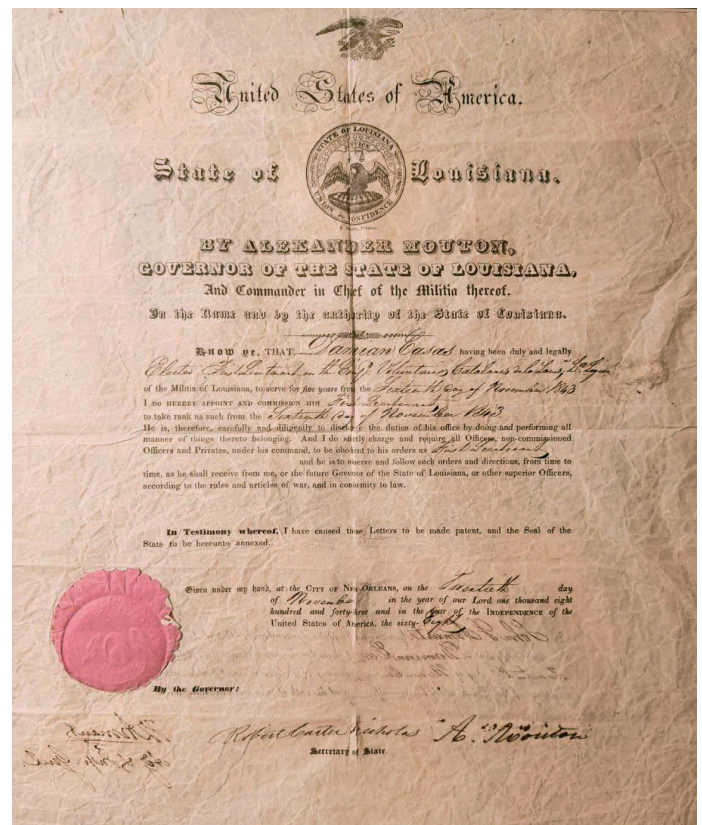 United States of America.
STATE OF LOUISIANA
UNION & CONFIDENCE
State of Louisiana.
BY ALEXANDER MOUTON,
GOVERNOR OF THE STATE OF LOUISIANA,
And Commander in Chief of the Militia thereof.
In the Name and by the authority of the State of Louisiana.
Know ye, THAT, Damian Casas having been duly and legally
Elected First Lieutenant in the Comp. Volunteers Catalanes
of the Militia of Louisiana, to serve for five years from the Sixteenth day of November 1843
I DO HEREBY APPOINT AND COMMISSION HIM First Lieutenant
to take rank as such from the Sixteenth day of November 1843.
He is, therefore, carefully and diligently to discharge the duties of his office by doing and performing all
manner of things thereto belonging. And I do strictly charge and require all Officers, non-commissioned
Officers and Privates, under his command, to be obedient to his orders as First Lieutenant
and he is to oserve and follow such orders and directions, from time to
time, as he shall receive from me, or the future Govenor of the State of Louisiana, or other superior Officers,
according to the rules and articles of war, and in conformity to law.
In Testimony whereof, I have caused these Letters to be made patent, and the Seal of the
State to be hereunto annexed.
Given under my hand, at the CITY OF NEW-ORLEANS, on the Twentieth day
of November in the year of our Lord one thousand eight
hundred and forty-three and in the year of the INDEPENDENCE of the
United States of America, the sixty-Eight
By the Governor:
Robert Carter Nicholas A. Mouton
Secretary of State.